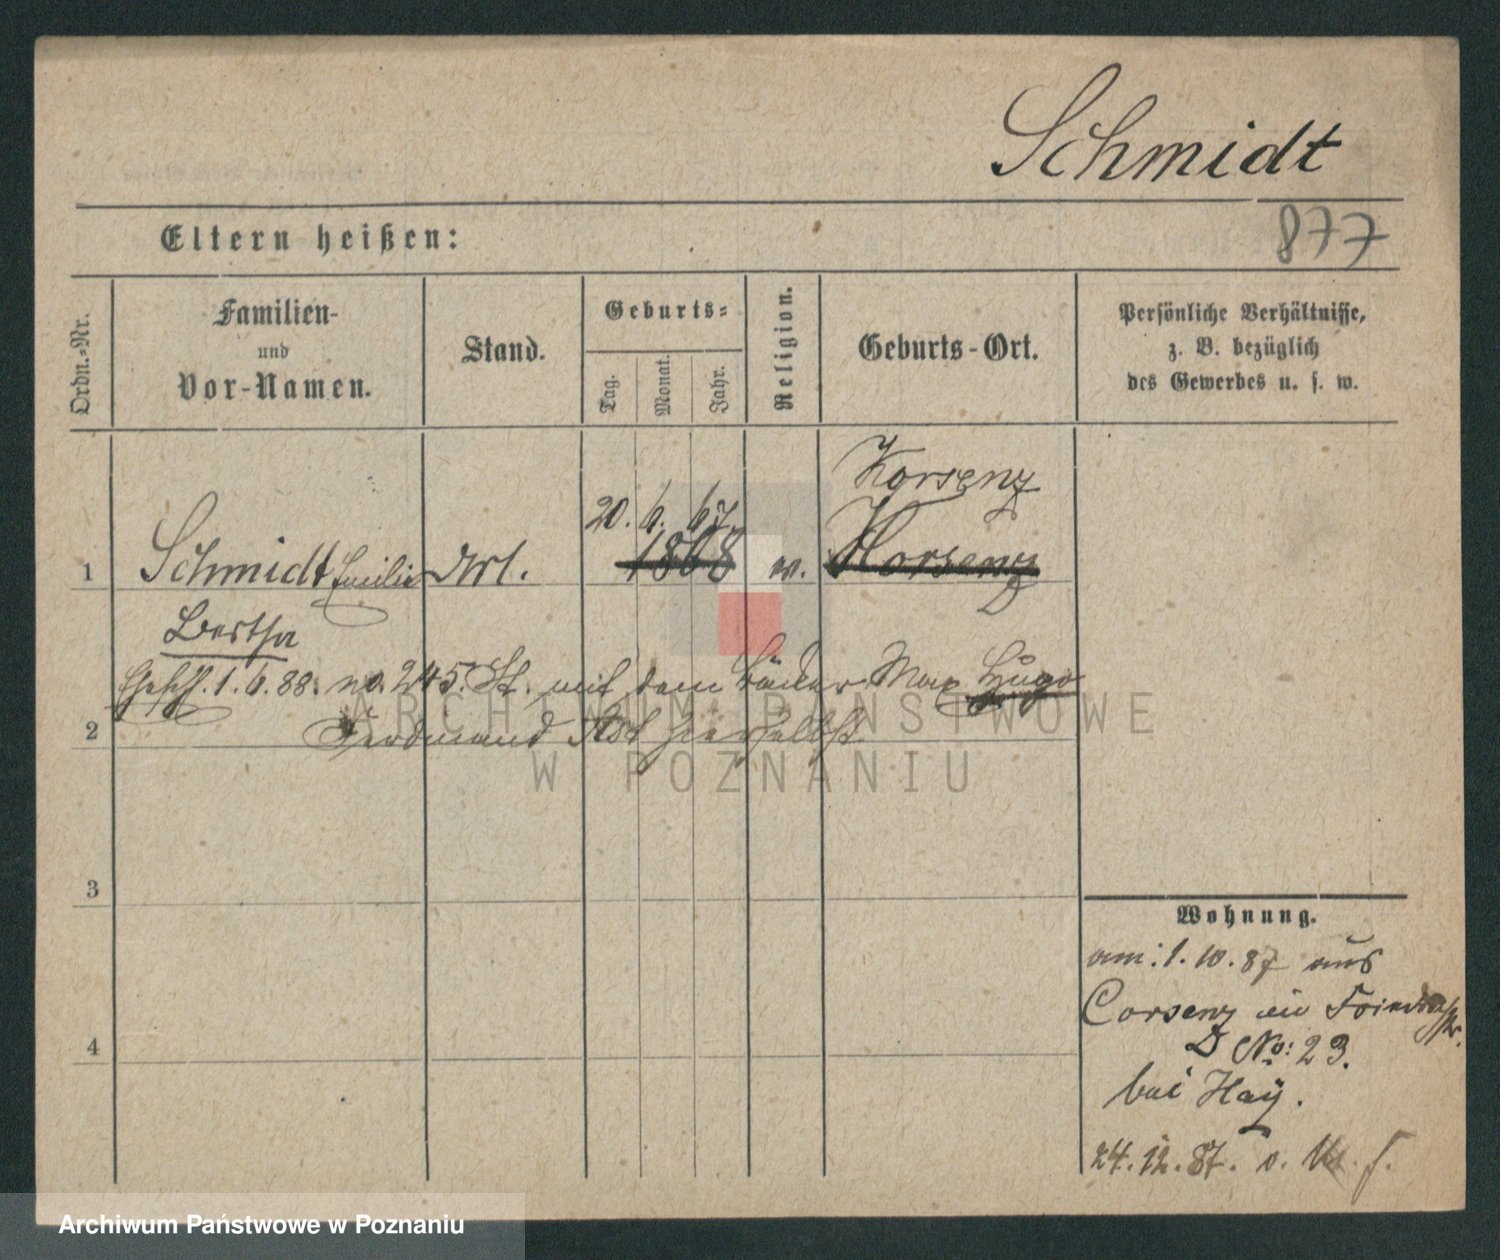 Schmidt
877
Eltern heißen:
Ordn.-Nr.
Familien-
und
Vor-Namen.
Stand.
Geburts-
Tag.
Monat.
Jahr.
Religion.
Geburts-Ort.
Persönliche Verhältnisse,
z. B. bezüglich
des Gewerbes u. s. w.
Korsenz
20. 6. 67.
1 Schmidt Emilie 1868 Horsenz
Bertha
1. 6. 88. no. 245. mit dem Bäcker Max Hugo
2 Ferdinand hierselbst
3
4
Wohnung.
am: 1. 10. 87 aus
Corsenz in
D No: 23.
bei Hay.
24. 12. 87. v.
ARCHIWUM PAŃSTWOWE
W POZNANIU
Archiwum Państwowe w Poznaniu